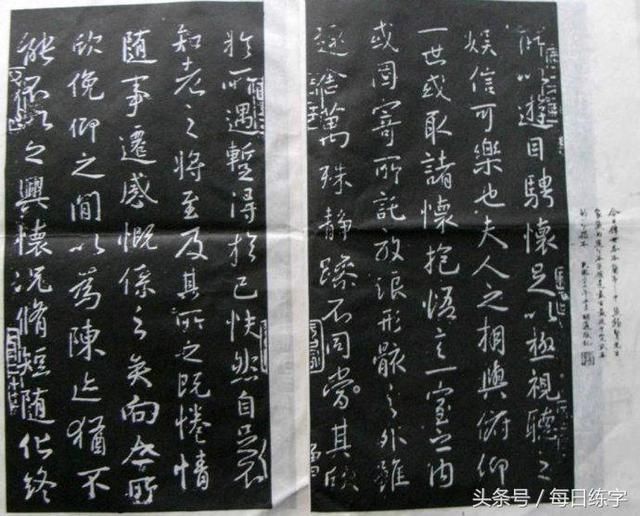 所以遊目騁懷足以極視聽之
娛信可樂也夫人之相與俯仰
一世或取諸懷抱悟言一室之內
或因寄所託放浪形骸之外雖
趣舍萬殊静躁不同當其欣
於所遇暫得於己快然自足不
知老之將至及其所之既惓情
隨事遷感慨係之矣向之所
欣俛仰之間以為陳迹猶不
能不以之興懷況脩短随化終
头条号 / 每日练字